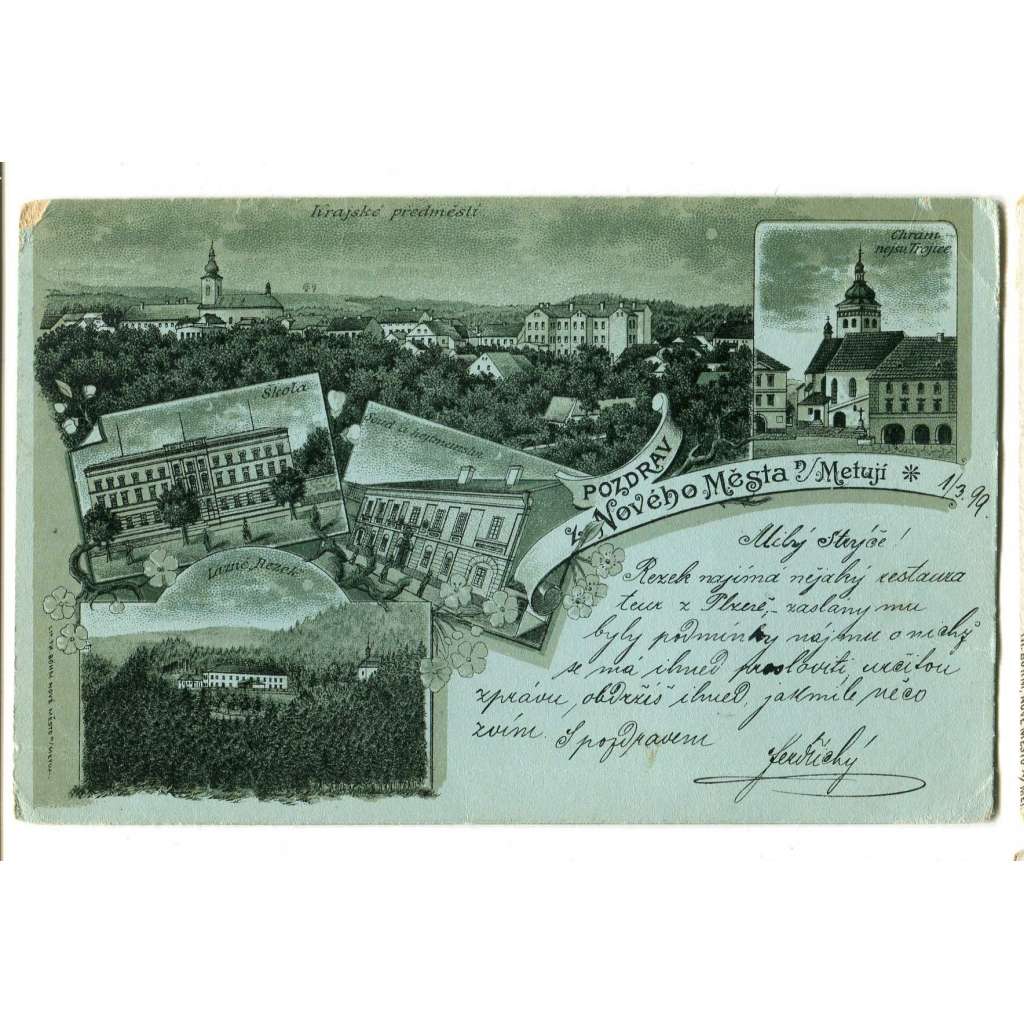 Krajské předměstí
Chrám
nejsv. Trojice
Škola
Soud a
Lázně Rezek
POZDRAV
z Nového Města n/Metují
1/3. 99.
Milý strýčé!
Rezek najímá nějaký restaura
teur z Plzeně, – zaslány mu
byly podmínky nájmu o nichž
se má ihned prosloviti, určitou
zprávu, obdržíš ihned, jakmile něco
zvím. S pozdravem